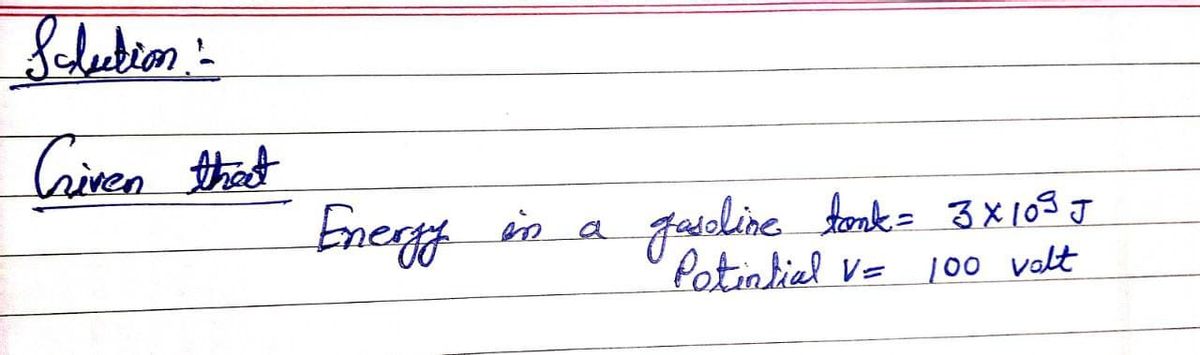 Solution :-
Given that
Energy in a gasoline tank = 3 × 10⁹ J
Potintial V = 100 volt